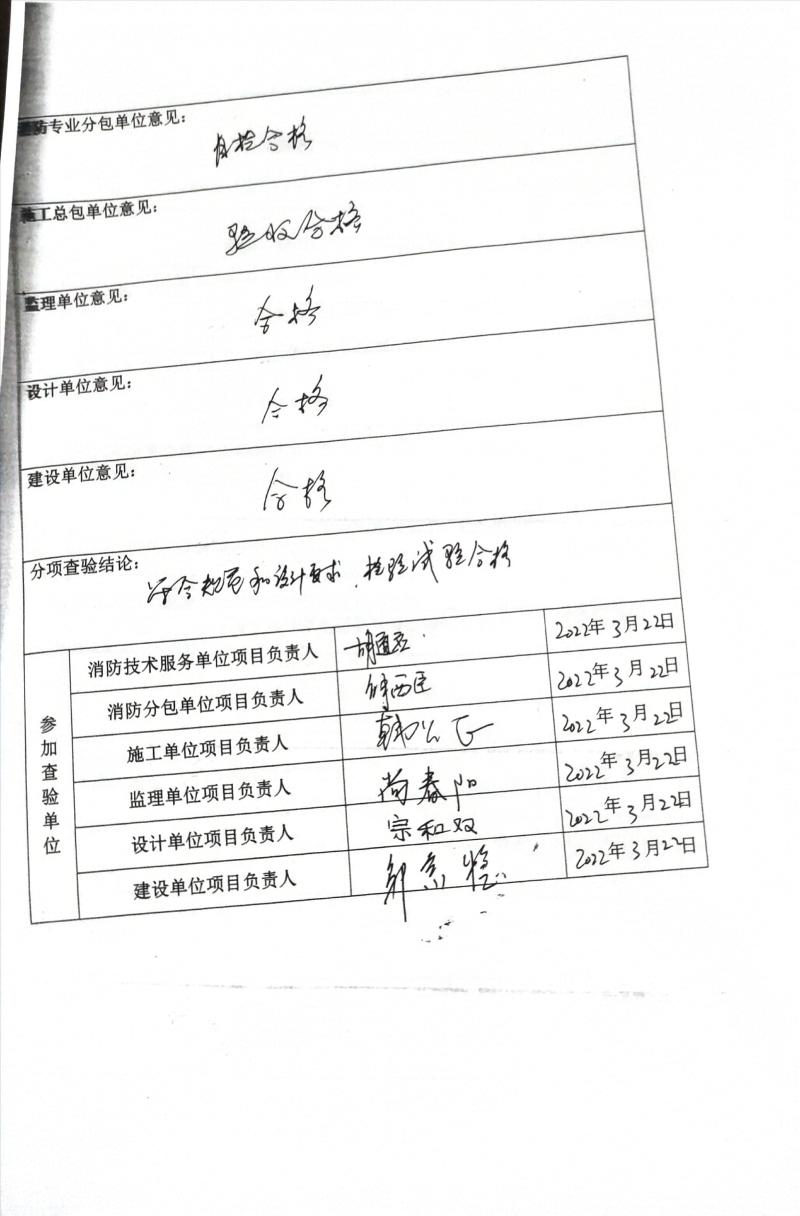 消防专业分包单位意见：
自检合格
施工总包单位意见：
验收合格
监理单位意见：
合格
设计单位意见：
合格
建设单位意见：
合格
分项查验结论：
符合规范和设计要求，检验试验合格
参加查验单位
消防技术服务单位项目负责人 2022年3月22日
消防分包单位项目负责人 2022年3月22日
施工单位项目负责人 2022年3月22日
监理单位项目负责人 尚春阳 2022年3月22日
设计单位项目负责人 宗和双 2022年3月22日
建设单位项目负责人 2022年3月22日